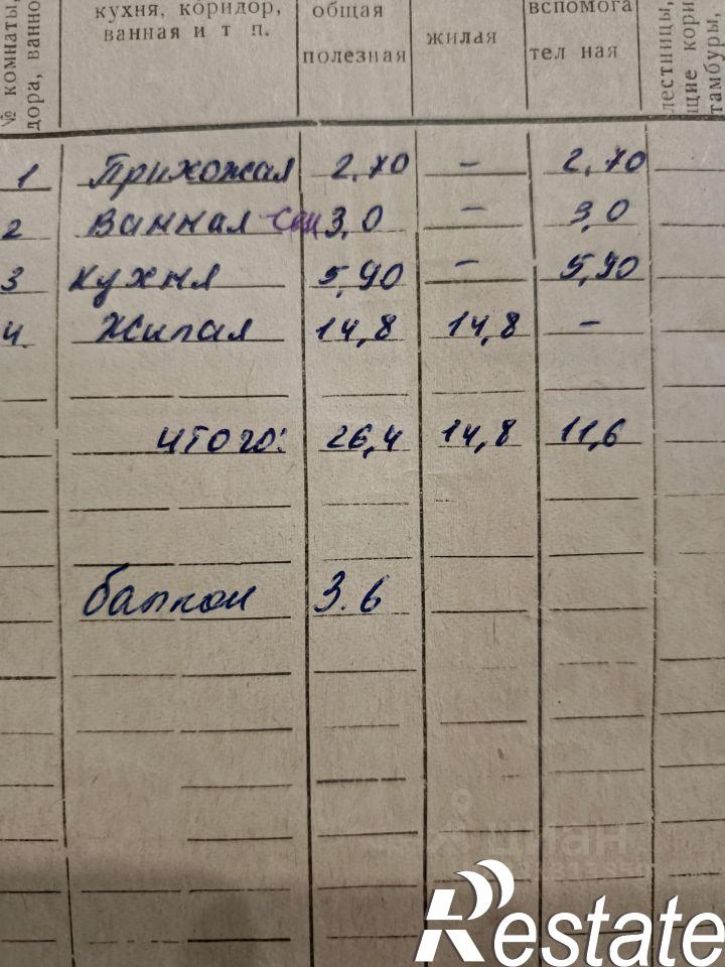 № комнаты, кухня, коридор, общая вспомога лестницы,
дора, ванно ванная и т п. полезная жилая тел ная щие кори
тамбуры,
1 Прихожая 2,70 - 2,70
2 Ванная-сан 3,0 - 3,0
3 Кухня 5,90 - 5,90
4. Жилая 14,8 14,8 -
итого: 26,4 14,8 11,6
балкон 3.6
циан
Restate